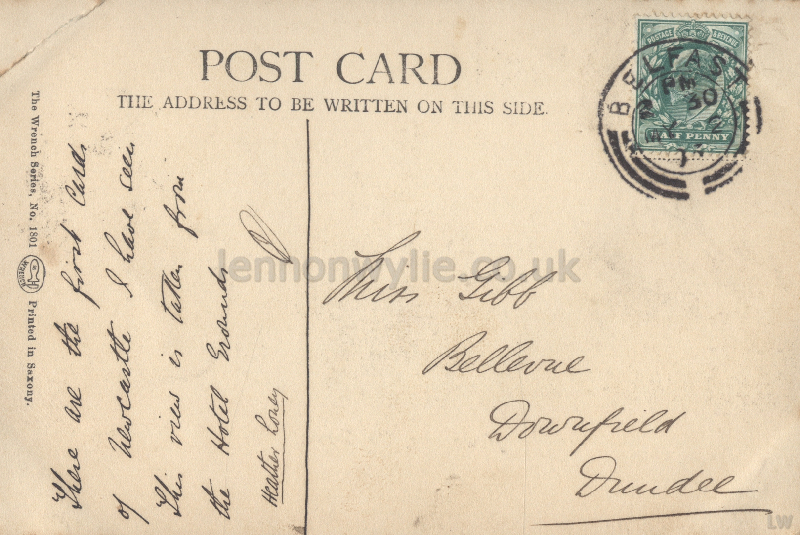 POST CARD
THE ADDRESS TO BE WRITTEN ON THIS SIDE.
POSTAGE & REVENUE
HALF PENNY
BELFAST
PM
30
The Wrench Series, No. 1801
WRENCH
Printed in Saxony.
These are the first Cards
of Newcastle I have seen
This view is taken from
the Hotel Grounds
Heather Loney
Miss Gibb
Bellevue
Downfield
Dundee
lennonwylie.co.uk
LW